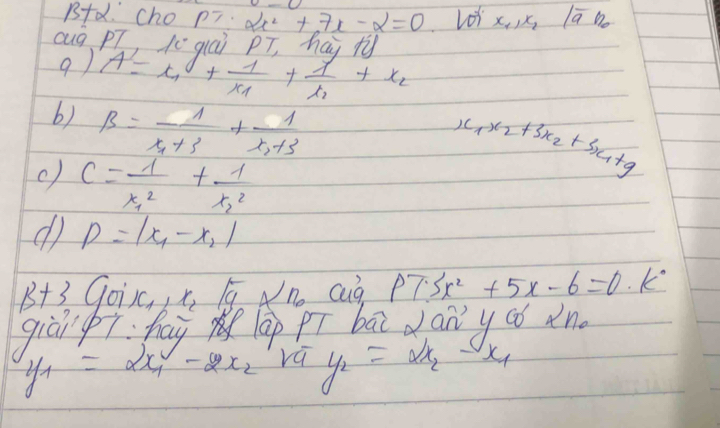 BT2: Cho PT: 2x² + 7x - 2 = 0. Với x₁, x₂ là n₀
của PT, giải PT, hãy
a) A = x₁ + 1/x₁ + 1/x₂ + x₂
b) B = 1/(x₁+3) + 1/(x₂+3)
x₁x₂ + 3x₂ + 3x₁ + 9
c) C = 1/x₁² + 1/x₂²
d) D = |x₁ - x₂|
BT3 Gọi x₁, x₂ là 2 n₀ của PT: 3x² + 5x - 6 = 0. K°
giải PT. hãy lập PT bậc 2 ẩn y có 2n₀
y₁ = 2x₁ - x₂ và y₂ = 2x₂ - x₁